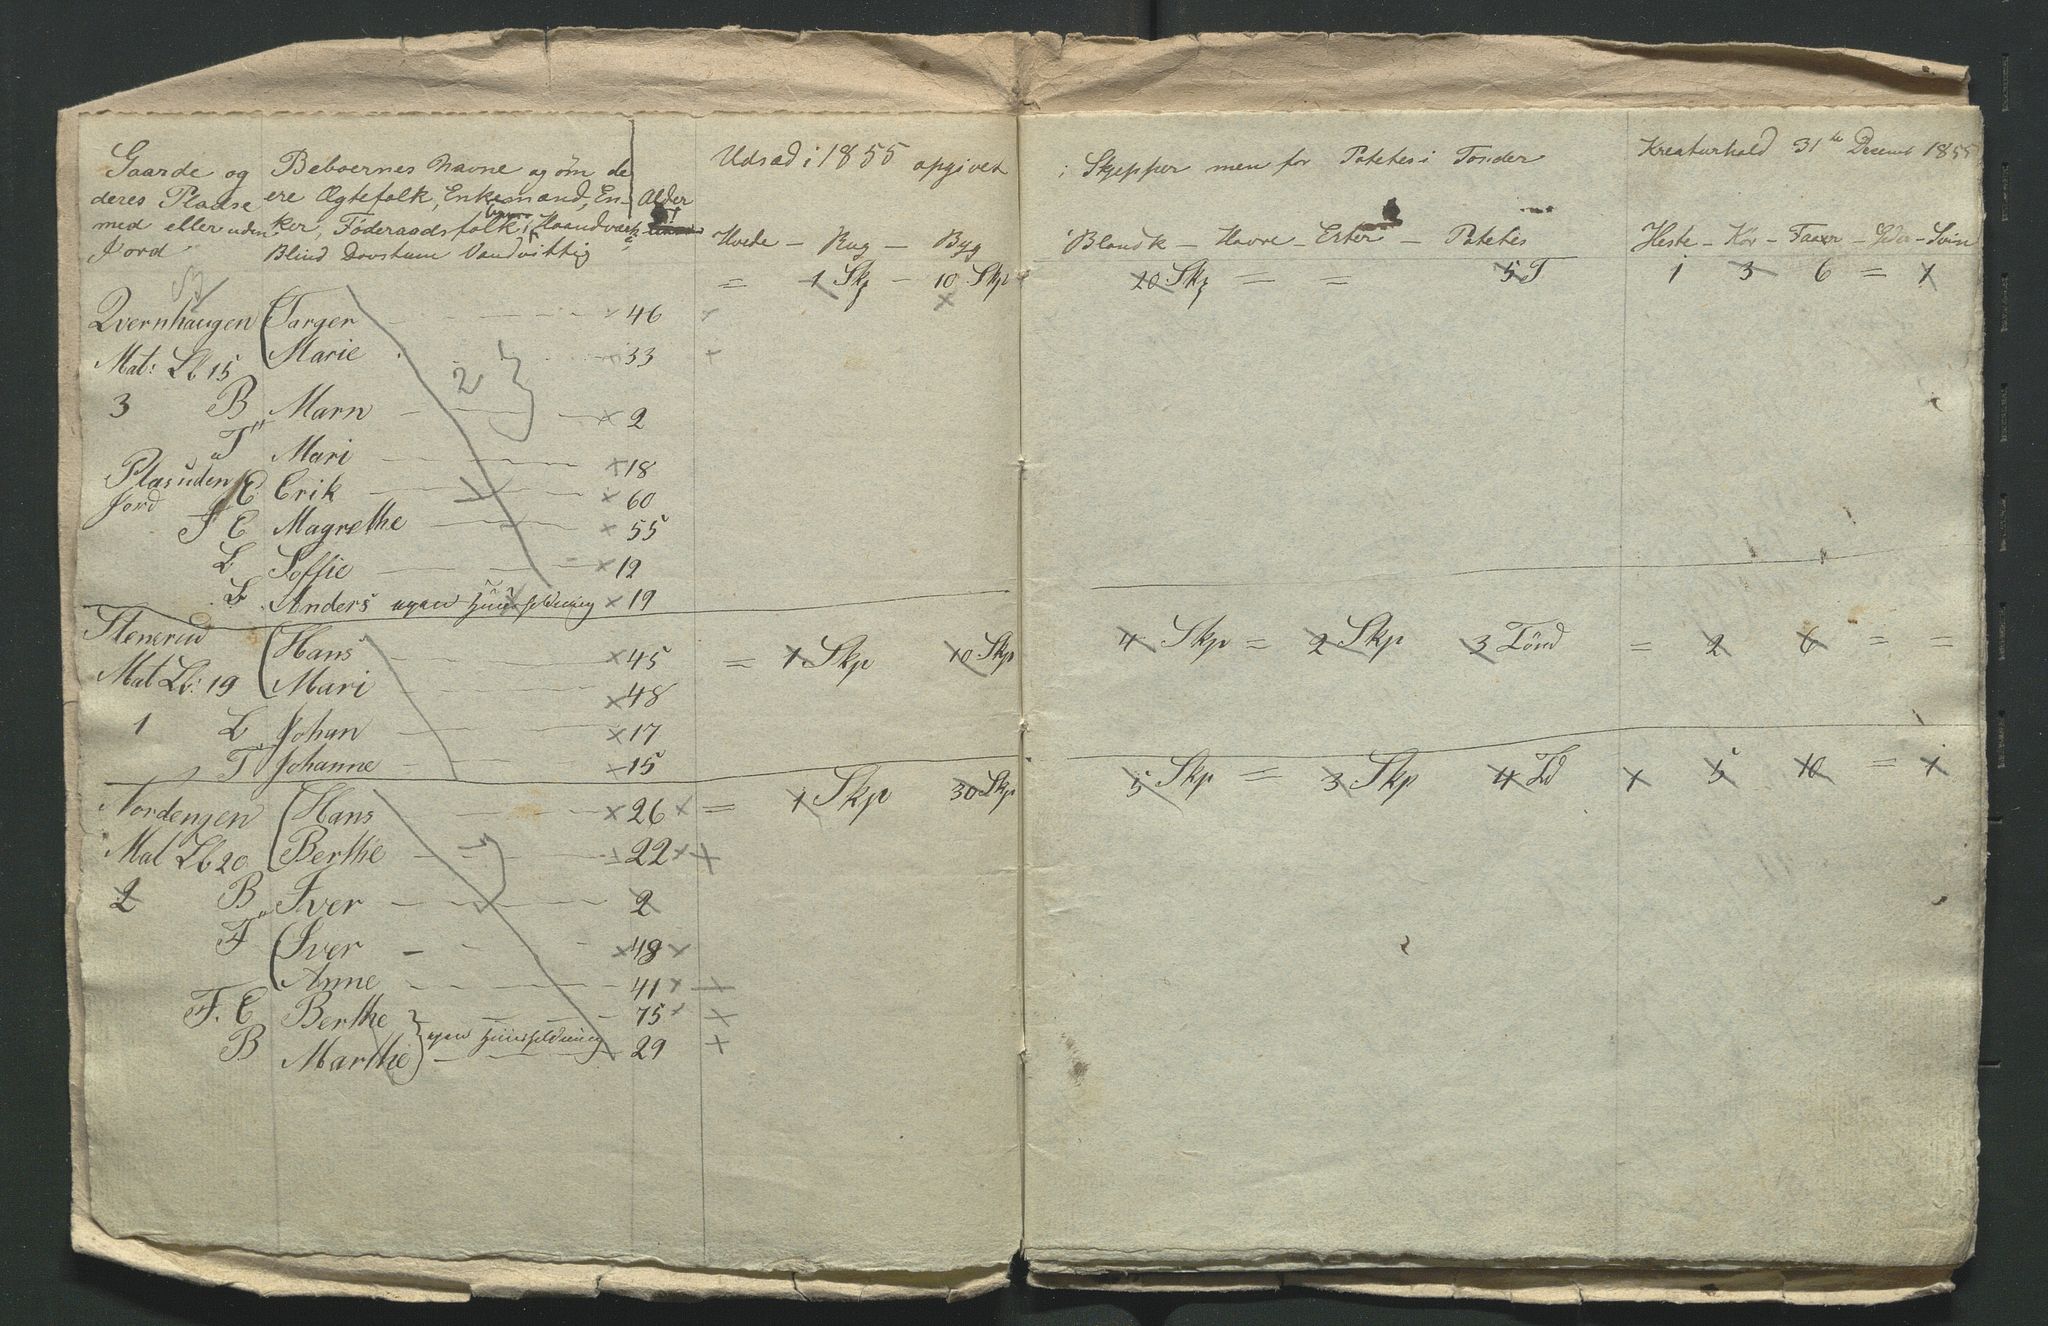 Gaarde og Beboernes Navne og om de Udsæd i 1855 opgivet i Skjepper men for Potetes i Tonder Kreaturhold 31te Decemb 1855
deres Pladse ere Ægtefolk, Enkemand, En- Alder
med eller uden ker, Föderaadsfolk, Haandværk
Jord Blind Dovstum Vandvittig
Hvede - Rug - Byg Blandk - Havre - Erter - Potetes Heste - Kör - Faar - Svin
= 1 Skp - 10 Skp 20 Skp = = 5 T 1 3 6 = 1
Qvernhaugen Targer 46
Mat: Lb 15 Marie 33
2
3 B Marn 2
T Mari 18
Plas uden E Erik 60
Jord F E Magrethe 55
L Soffie 12
L Anders egen Huusholdning 19
Stenerud Hans 45 = 1 Skp 10 Skp 4 Skp = 2 Skp 3 Tönd = 2 6 = =
Mat Lb: 19 Mari 48
1 L Johan 17
T Johanne 15
Nordengen Hans 26 = 1 Skp 30 Skp 5 Skp = 3 Skp 4 Td 1 5 10 = 1
Mat Lb 20 Berthe 22
2 B Iver 2
F Iver 48
Anne 41
F. E Berthe 75
egen Huusholdning
B Marthe 29